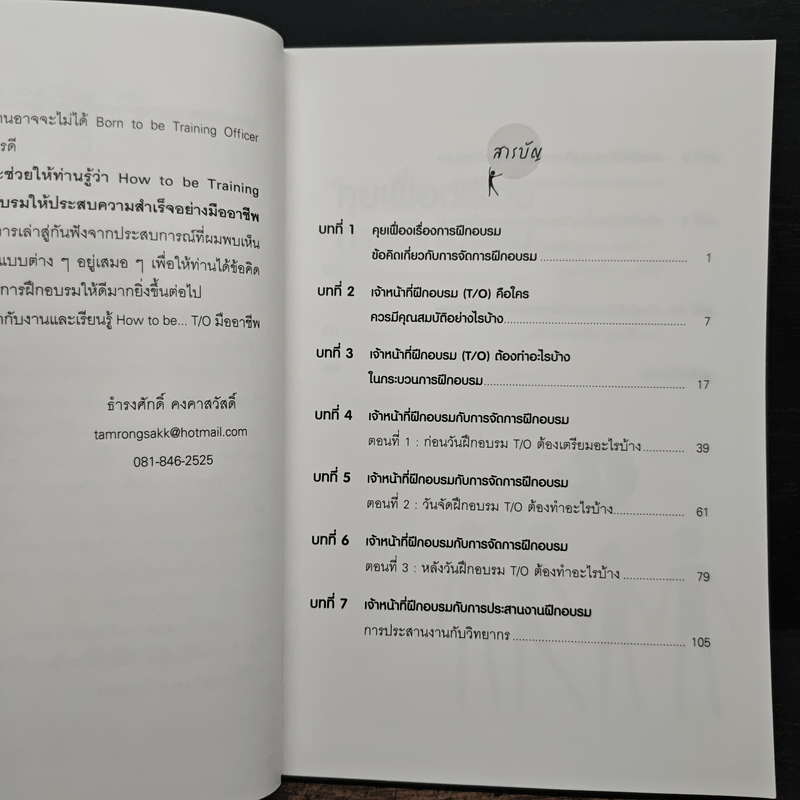 านอาจจะไม่ได้ Born to be Training Officer
รดี
ะช่วยให้ท่านรู้ว่า How to be Training
บรมให้ประสบความสำเร็จอย่างมืออาชีพ
การเล่าสู่กันฟังจากประสบการณ์ที่ผมพบเห็น
แบบต่าง ๆ อยู่เสมอ ๆ เพื่อให้ท่านได้ข้อคิด
การฝึกอบรมให้ดีมากยิ่งขึ้นต่อไป
ากับงานและเรียนรู้ How to be... T/O มืออาชีพ
ธำรงศักดิ์ คงคาสวัสดิ์
tamrongsakk@hotmail.com
081-846-2525
สารบัญ
บทที่ 1 คุยเฟื่องเรื่องการฝึกอบรม
ข้อคิดเกี่ยวกับการจัดการฝึกอบรม 1
บทที่ 2 เจ้าหน้าที่ฝึกอบรม (T/O) คือใคร
ควรมีคุณสมบัติอย่างไรบ้าง 7
บทที่ 3 เจ้าหน้าที่ฝึกอบรม (T/O) ต้องทำอะไรบ้าง
ในกระบวนการฝึกอบรม 17
บทที่ 4 เจ้าหน้าที่ฝึกอบรมกับการจัดการฝึกอบรม
ตอนที่ 1 : ก่อนวันฝึกอบรม T/O ต้องเตรียมอะไรบ้าง 39
บทที่ 5 เจ้าหน้าที่ฝึกอบรมกับการจัดการฝึกอบรม
ตอนที่ 2 : วันจัดฝึกอบรม T/O ต้องทำอะไรบ้าง 61
บทที่ 6 เจ้าหน้าที่ฝึกอบรมกับการจัดการฝึกอบรม
ตอนที่ 3 : หลังวันฝึกอบรม T/O ต้องทำอะไรบ้าง 79
บทที่ 7 เจ้าหน้าที่ฝึกอบรมกับการประสานงานฝึกอบรม
การประสานงานกับวิทยากร 105